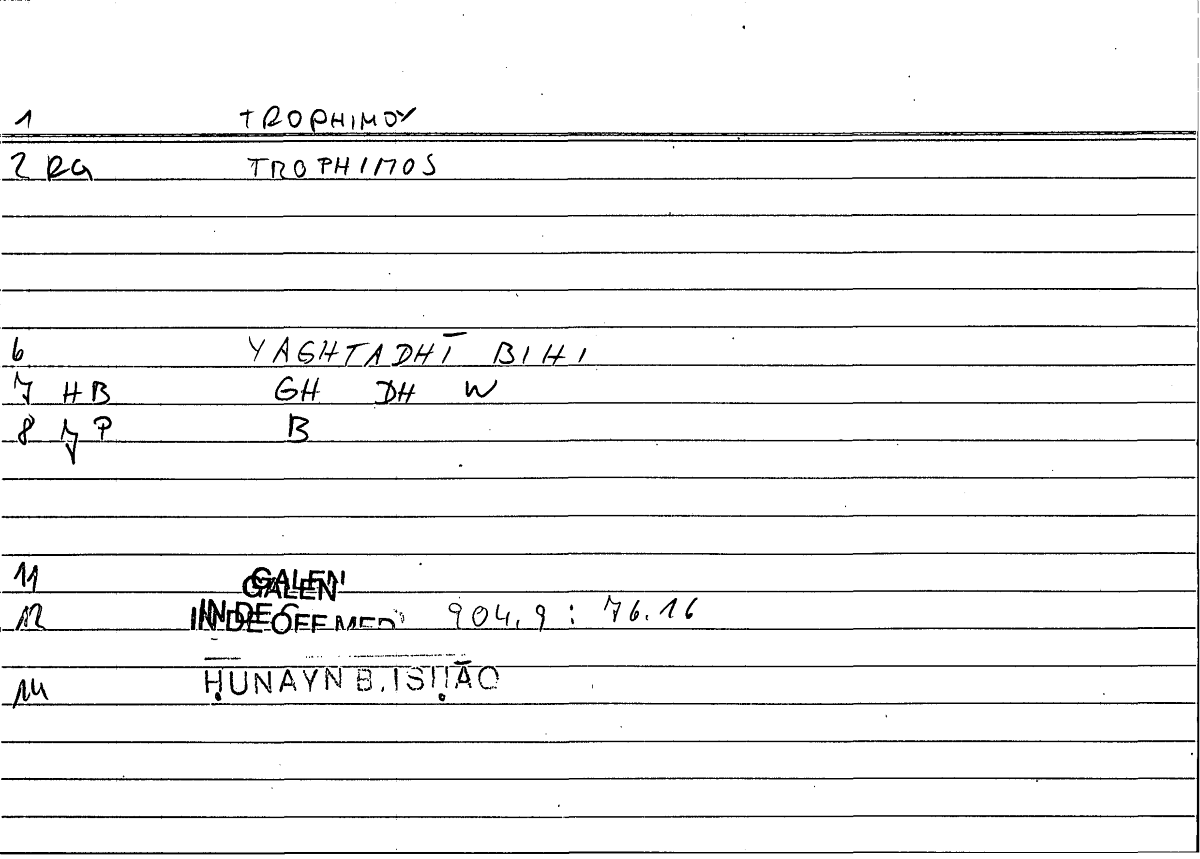 1 TROPHIMOY
2 RG TROPHIMOS
6 YAGHTADHĪ BIHI
7 HB GH DH W
8 7P B
11 GALEN
12 IN DE OFF MED 904.9 : 76.16
14 ḤUNAYN B. ISḤĀQ